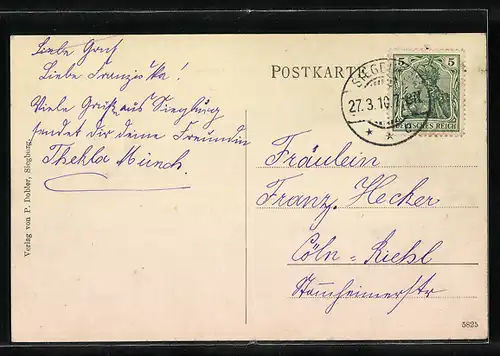 Liebe
Liebe Franziska!
Viele Grüße aus Siegburg
sendet dir deine Freundin
Thekla Münch.
Verlag von P. Dobler, Siegburg.
POSTKARTE
SIEGB
27.3.10.
5 5
DEUTSCHES REICH
Fräulein
Franz. Hecker
Cöln-Riehl
Stammheimerstr
5825